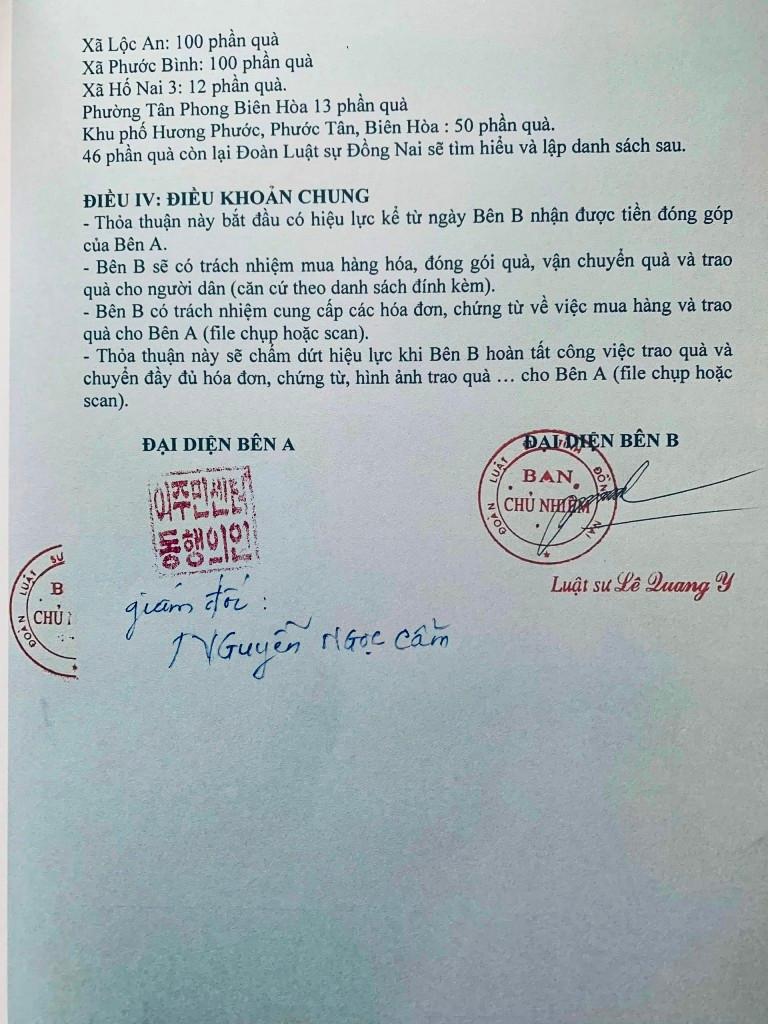 Xã Lộc An: 100 phần quà
Xã Phước Bình: 100 phần quà
Xã Hố Nai 3: 12 phần quà.
Phường Tân Phong Biên Hòa 13 phần quà
Khu phố Hương Phước, Phước Tân, Biên Hòa : 50 phần quà.
46 phần quà còn lại Đoàn Luật sự Đồng Nai sẽ tìm hiểu và lập danh sách sau.
ĐIỀU IV: ĐIỀU KHOẢN CHUNG
- Thỏa thuận này bắt đầu có hiệu lực kể từ ngày Bên B nhận được tiền đóng góp
của Bên A.
- Bên B sẽ có trách nhiệm mua hàng hóa, đóng gói quà, vận chuyển quà và trao
quà cho người dân (căn cứ theo danh sách đính kèm).
- Bên B có trách nhiệm cung cấp các hóa đơn, chứng từ về việc mua hàng và trao
quà cho Bên A (file chụp hoặc scan).
- Thỏa thuận này sẽ chấm dứt hiệu lực khi Bên B hoàn tất công việc trao quà và
chuyển đầy đủ hóa đơn, chứng từ, hình ảnh trao quà … cho Bên A (file chụp hoặc
scan).
ĐẠI DIỆN BÊN A
ĐẠI DIỆN BÊN B
이주민센터
동행의인
ĐOÀN LUẬT TỈNH ĐỒNG NAI
BAN
CHỦ NHIỆM
Luật sư Lê Quang Y
ĐOÀN LUẬT SƯ
B
CHỦ
giám đốc :
Nguyễn Ngọc Cẩm